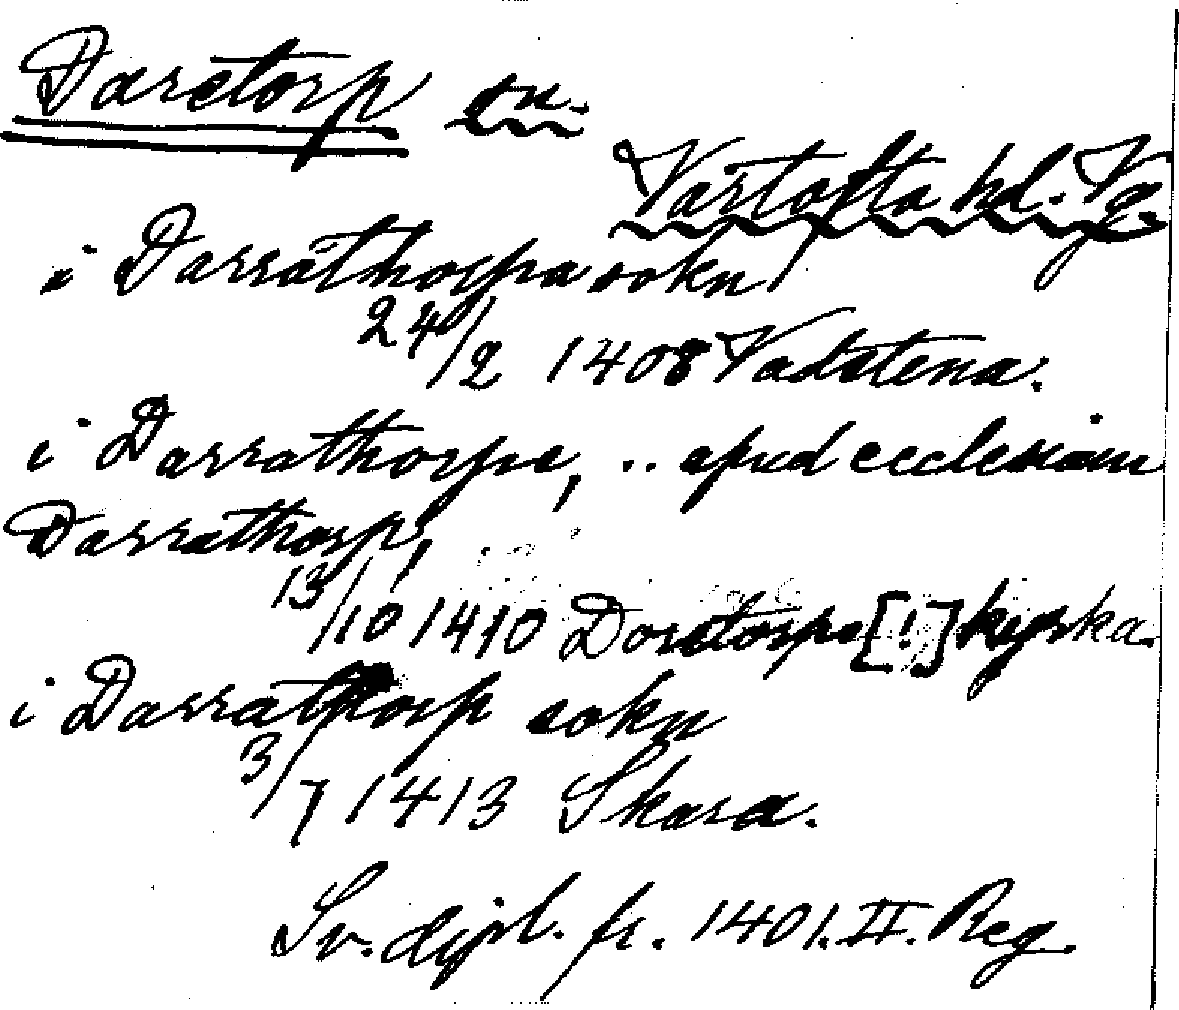 Daretorp sn.
Vartofta hd. Vg.
i Darrathorpa sokn
24/2 1408 Vadstena.
i Darrathorpe, .. apud ecclesiam
Darrathorp,
13/10 1410 Doretorps [!] kyrka.
i Darrathorp sokn
3/7 1413 Skara.
Sv. dipl. fr. 1401. II. Reg.